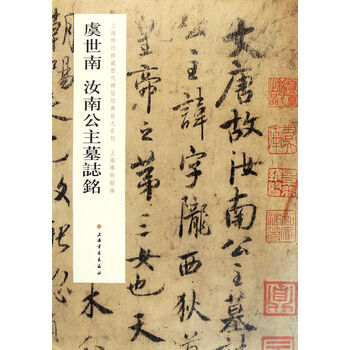 虞世南 汝南公主墓誌銘
上海博物館藏歷代碑帖經典放大系列 上海博物館編
上海書畫出版社
大唐故汝南公主墓誌
公主諱字隴西狄道
皇帝之第三女也天
木
朝陽